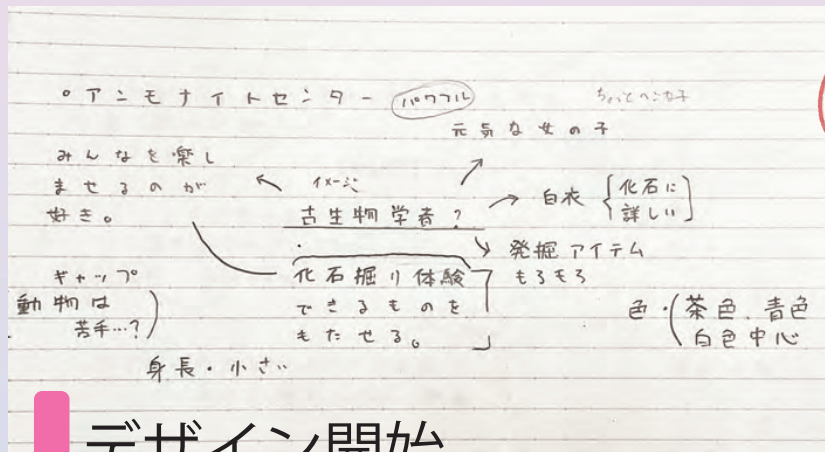 ・アンモナイトセンター パワフル
ちょっとヘンな子
元気な女の子
みんなを楽し
ませるのが
好き。
イメージ
古生物学者?
白衣 {化石に
詳しい}
発掘アイテム
もろもろ
化石掘り体験
できるものを
もたせる。
ギャップ
動物は
苦手…?)
身長・小さい
色・(茶色、青色
白色中心
デザイン開始